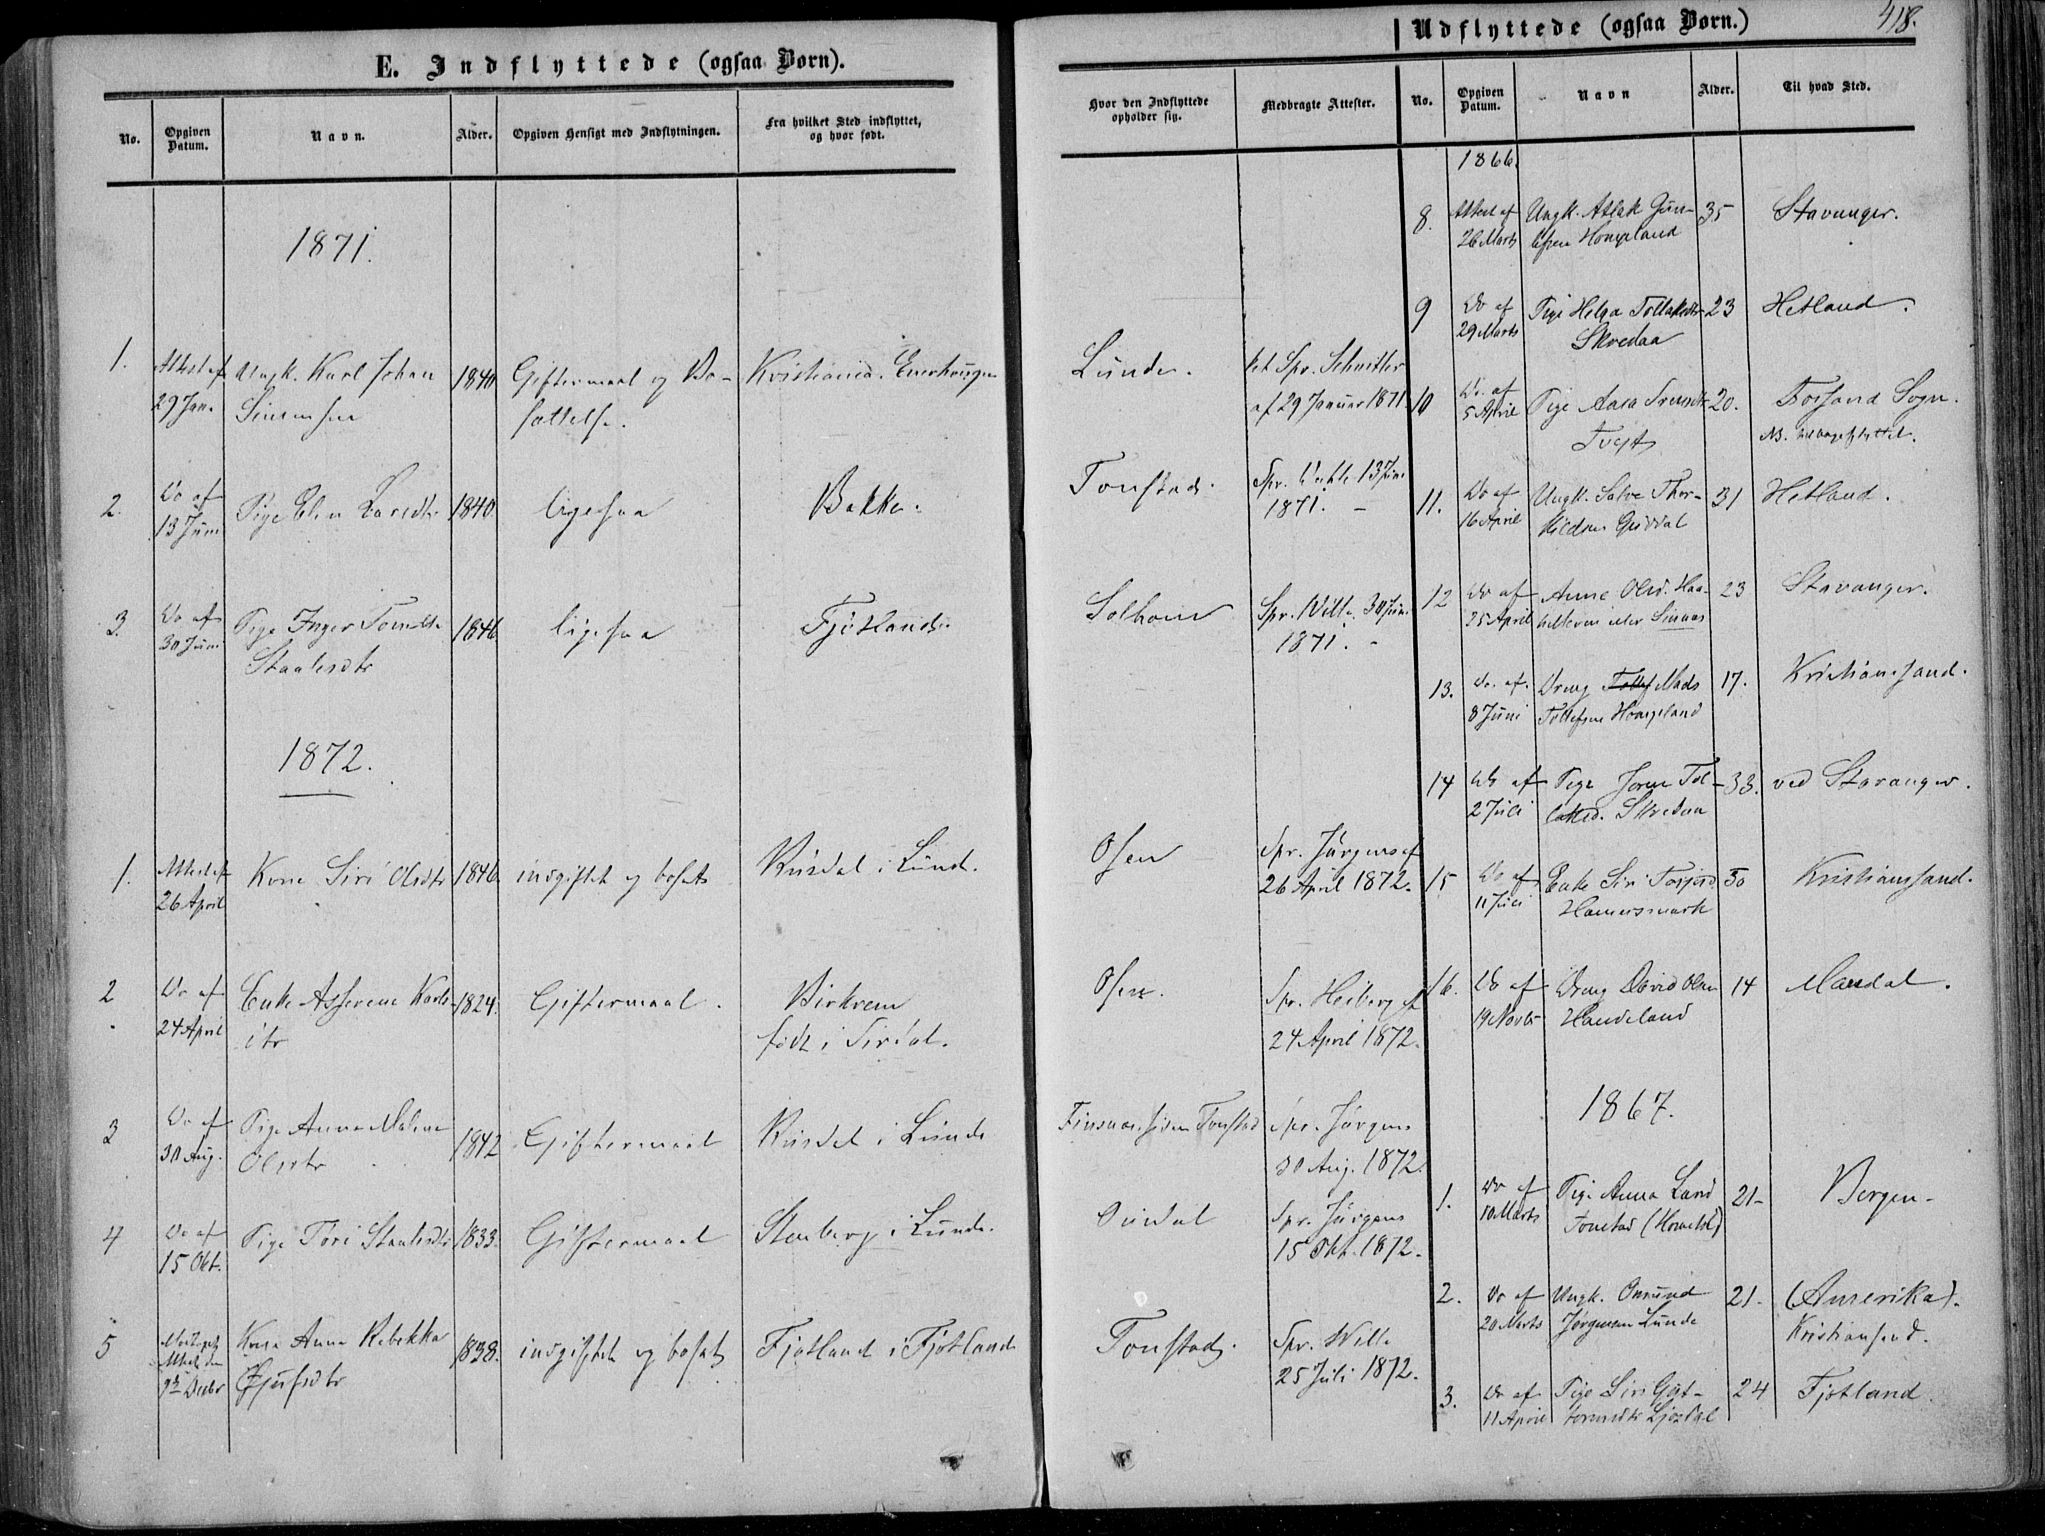 E. Indflyttede (ogsaa Børn).
No.
Opgiven Datum.
Navn.
Alder.
Opgiven Hensigt med Indflytningen.
Fra hvilket Sted indflyttet, og hvor født.
Hvor den Indflyttede opholder sig.
Medbragte Attester.
1871.
1. Attest af Ungk. Karl Johan 1840 Giftermaal og Bo- Kristiania. Enerhaugen Lunde.
29 Jan. Simensen sættelse. af 29 Januar 1871
2. Do af Pige Elen Larsdtr 1840. ligesaa Bakke. Tonstad. Spr. 13 Juni
13 Juni 1871. –
3. Do af Pige Inger 1846 ligesaa Fjotland. Solhom Spr. Wille 30 Juni
30 Juni Staalesdtr 1871. –
1872.
1. Attest af Kone Siri Olsdtr 1846. indgiftet og bosat Rusdal i Lund. Osen Spr. Jürgens af
26 April 26 April 1872.
2 Do af Enke Asserene Karls- 1824. Giftermaal. Birkrem Osen. Spr. Heiberg af
24 April dtr født i Sirdal. 24 April 1872.
3 Do af Pige Anna Malene 1842 Giftermaal Rusdal i Lunde Tonstad Spr. Jürgens
30 Aug. Olsdtr 30 Aug. 1872.
4 Do af Pige Tori Staalesdtr 1833. Giftermaal Stenberg i Lunde. Ousdal Spr. Jürgens
15 Okt. 15 Okt. 1872.
5 Kone Anna Rebekka 1838. indgiftet og bosat Fjotland i Fjotland Tonstad. Spr. Wille
9de Decbr 25 Juli 1872.
Udflyttede (ogsaa Børn.)
418.
No.
Opgiven Datum.
Navn
Alder.
Til hvad Sted.
1866.
8. Attest af Ungk. Atlak Gun- 35 Stavanger.
26 Marts Hompland
9 Do af Pige Helga Tollaksdtr 23 Hetland.
29 Marts Skredaa
10 Do. af Pige Aasa 20. Fossand Sogn.
5 April Tveit NB. tilbageflyttet.
11. Do af Ungk. Salve Thor- 31 Hetland.
16 April kildsen Guddal
12 Do af Anne Olsd. Haa- 23 Stavanger.
25 April eller Sinnes
13. Do. af Dreng Tollef Mads 17. Kristiansand.
8 Juni Tollefsen Hompland
14 Do af Pige Jorun Tol- 33. ved Stavanger.
2 Juli laksd. Skredaa
15 Do af Enke Siri Torjusd 50 Kristiansand.
11 Juli Hamersmark
16. Do af Dreng David Olsen 14 Mandal.
19 Novbr Haudeland
1867.
1. Do af Pige Anna Lard 21– Bergen–
10 Marts Tonstad (Homstøl)
2. Do af Ungk. Omund 21. (Amerika).
20 Marts Jørgensen Lunde Kristiansand.
3. Do af Pige Siri Gut- 24 Fjotland.
11 April tormsdtr Ljosdal